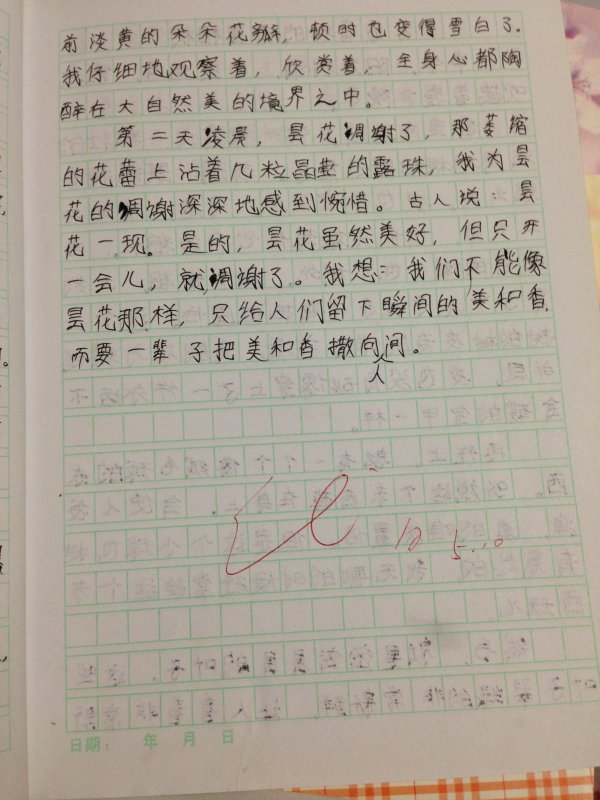 前淡黄的朵朵花瓣，顿时也变得雪白了。
我仔细地观察着，欣赏着，全身心都陶
醉在大自然美的境界之中。
第二天凌晨，昙花凋谢了，那萎缩
的花蕾上沾着几粒晶莹的露珠，我为昙
花的凋谢深深地感到惋惜。古人说：昙
花一现。是的，昙花虽然美好，但只开
一会儿，就凋谢了。我想：我们不能像
昙花那样，只给人们留下瞬间的美和香，
而要一辈子把美和香撒向人间。
5.10
日期： 年 月 日